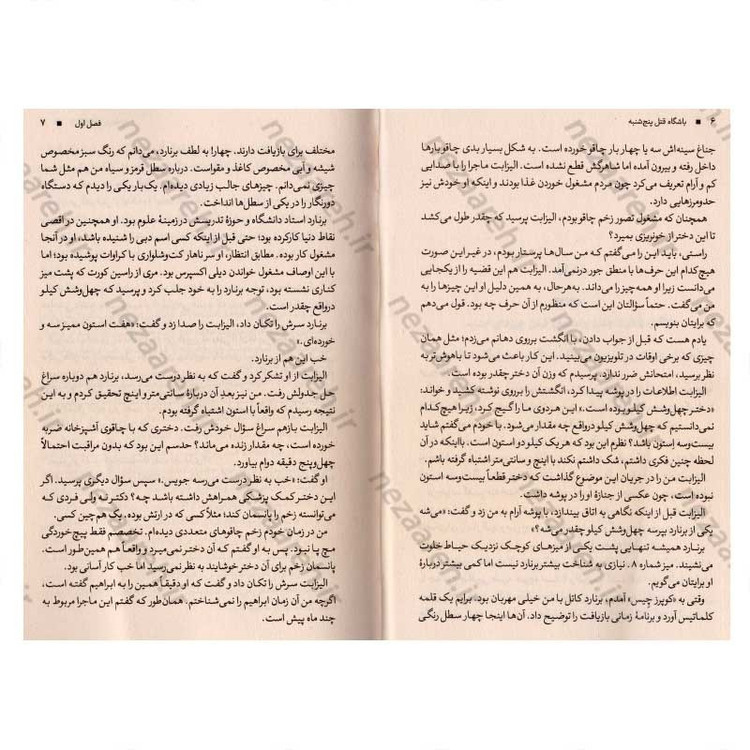 ۶ ■ باشگاه قتل پنج‌شنبه
جناغ سینه‌اش سه یا چهار بار چاقو خورده است. به شکل بسیار بدی چاقو بارها
داخل رفته و بیرون آمده اما شاهرگش قطع نشده است. الیزابت ماجرا را با صدایی
کم و آرام تعریف می‌کرد چون مردم مشغول خوردن غذا بودند و اینکه او خودش نیز
حدومرزهایی دارد.
همچنان که مشغول تصور زخم چاقو بودم، الیزابت پرسید که چقدر طول می‌کشد
تا این دختر از خونریزی بمیرد؟
راستی، باید این را می‌گفتم که من سال‌ها پرستار بودم، در غیر این صورت
هیچ‌کدام این حرف‌ها با منطق جور درنمی‌آمد. الیزابت هم این قضیه را از یکجایی
می‌دانست زیرا او همه‌چیز را می‌داند. به‌هرحال، به همین دلیل او این چیزها را به
من می‌گفت. حتماً سؤالتان این است که منظورم از آن حرف چه بود. قول می‌دهم
که برایتان بنویسم.
یادم هست که قبل از جواب دادن، با انگشت برروی دهانم می‌زدم؛ مثل همان
چیزی که برخی اوقات در تلویزیون می‌بینید. این کار باعث می‌شود تا باهوش‌تر به
نظر برسید، امتحانش ضرر ندارد. پرسیدم که وزن آن دختر چقدر بوده است.
الیزابت اطلاعات را در پوشه پیدا کرد، انگشتش را برروی نوشته کشید و خواند:
«دختر چهل‌وشش کیلو بوده است.» این هردوی ما را گیج کرد، زیرا هیچ‌کدام
نمی‌دانستیم که چهل‌وشش کیلو درواقع چه مقدار می‌شود. با خودم می‌گفتم شاید
بیست‌وسه استون باشد؟ نظرم این بود که هر یک کیلو دو استون است. بااینکه در آن
لحظه چنین فکری داشتم، شک داشتم نکند با اینچ و سانتی‌متر اشتباه گرفته باشم.
الیزابت من را در جریان این موضوع گذاشت که دختر قطعاً بیست‌وسه استون
نبوده است، چون عکسی از جنازهٔ او را در پوشه داشت.
الیزابت قبل از اینکه نگاهی به اتاق بیندازد، با پوشه آرام به من زد و گفت: «می‌شه
یکی از برنارد بپرسه چهل‌وشش کیلو چقدر می‌شه؟»
برنارد همیشه تنهایی پشت یکی از میزهای کوچک نزدیک حیاط خلوت
می‌نشیند. میز شماره ۸. نیازی به شناخت بیشتر برنارد نیست اما کمی بیشتر دربارهٔ
او برایتان می‌گویم.
وقتی به «کوپرز چیس» آمدم، برنارد کاتل با من خیلی مهربان بود. برایم یک قلمه
کلماتیس آورد و برنامهٔ زمانی بازیافت را توضیح داد. آن‌ها اینجا چهار سطل رنگی
فصل اول ■ ۷
مختلف برای بازیافت دارند. چهار! به لطف برنارد، می‌دانم که رنگ سبز مخصوص
شیشه و آبی مخصوص کاغذ و مقواست. درباره سطل قرمز و سیاه من هم مثل شما
چیزی نمی‌دانم. چیزهای جالب زیادی دیده‌ام. یک‌بار یکی را دیدم که دستگاه
دورنگار را در یکی از سطل‌ها انداخت.
برنارد استاد دانشگاه و حوزهٔ تدریسش در زمینهٔ علوم بود. او همچنین در اقصی
نقاط دنیا کار کرده بود؛ حتی قبل از اینکه کسی اسم دبی را شنیده باشد، او در آنجا
مشغول کار بوده. مطابق انتظار، او سر ناهار کت‌وشلواری با کراوات پوشیده بود؛ اما
با این اوصاف مشغول خواندن دیلی اکسپرس بود. مری از راسین کورت که پشت میز
کناری نشسته بود، توجه برنارد را به خود جلب کرد و پرسید که چهل‌وشش کیلو
درواقع چقدر است.
برنارد سرش را تکان داد، الیزابت را صدا زد و گفت: «هفت استون ممیز سه و
خورده‌ای.»
خب این هم از برنارد.
الیزابت از او تشکر کرد و گفت که به نظر درست می‌رسد، برنارد هم دوباره سراغ
حل جدولش رفت. من نیز بعدِ آن دربارهٔ سانتی‌متر و اینچ تحقیق کردم و به این
نتیجه رسیدم که واقعاً با استون اشتباه گرفته بودم.
الیزابت بازهم سراغ سؤال خودش رفت. دختری که با چاقوی آشپزخانه ضربه
خورده است، چه مقدار زنده می‌ماند؟ حدسم این بود که بدون مراقبت احتمالاً
چهل‌وپنج دقیقه دوام بیاورد.
او گفت: «خب به نظر درست می‌رسه جویس.» سپس سؤال دیگری پرسید. اگر
این دختر کمک پزشکی همراهش داشته باشد چه؟ دکتر نه ولی فردی که
می‌توانسته زخم را پانسمان کند؛ مثلاً کسی که در ارتش بوده. یک همچین کسی.
من در زمان خودم زخم چاقوهای متعددی دیده‌ام. تخصصم فقط پیچ‌خوردگی
مچ پا نبود. پس به او گفتم که آن دختر نمی‌میرد و واقعاً هم همین‌طور است.
پانسمان زخم برای آن دختر خوشایند به نظر نمی‌رسید اما خب کار آسانی بود.
الیزابت سرش را تکان داد و گفت که او دقیقاً همین را به ابراهیم گفته است،
اگرچه من آن زمان ابراهیم را نمی‌شناختم. همان‌طور که گفتم این ماجرا مربوط به
چند ماه پیش است.
nezaareh.ir